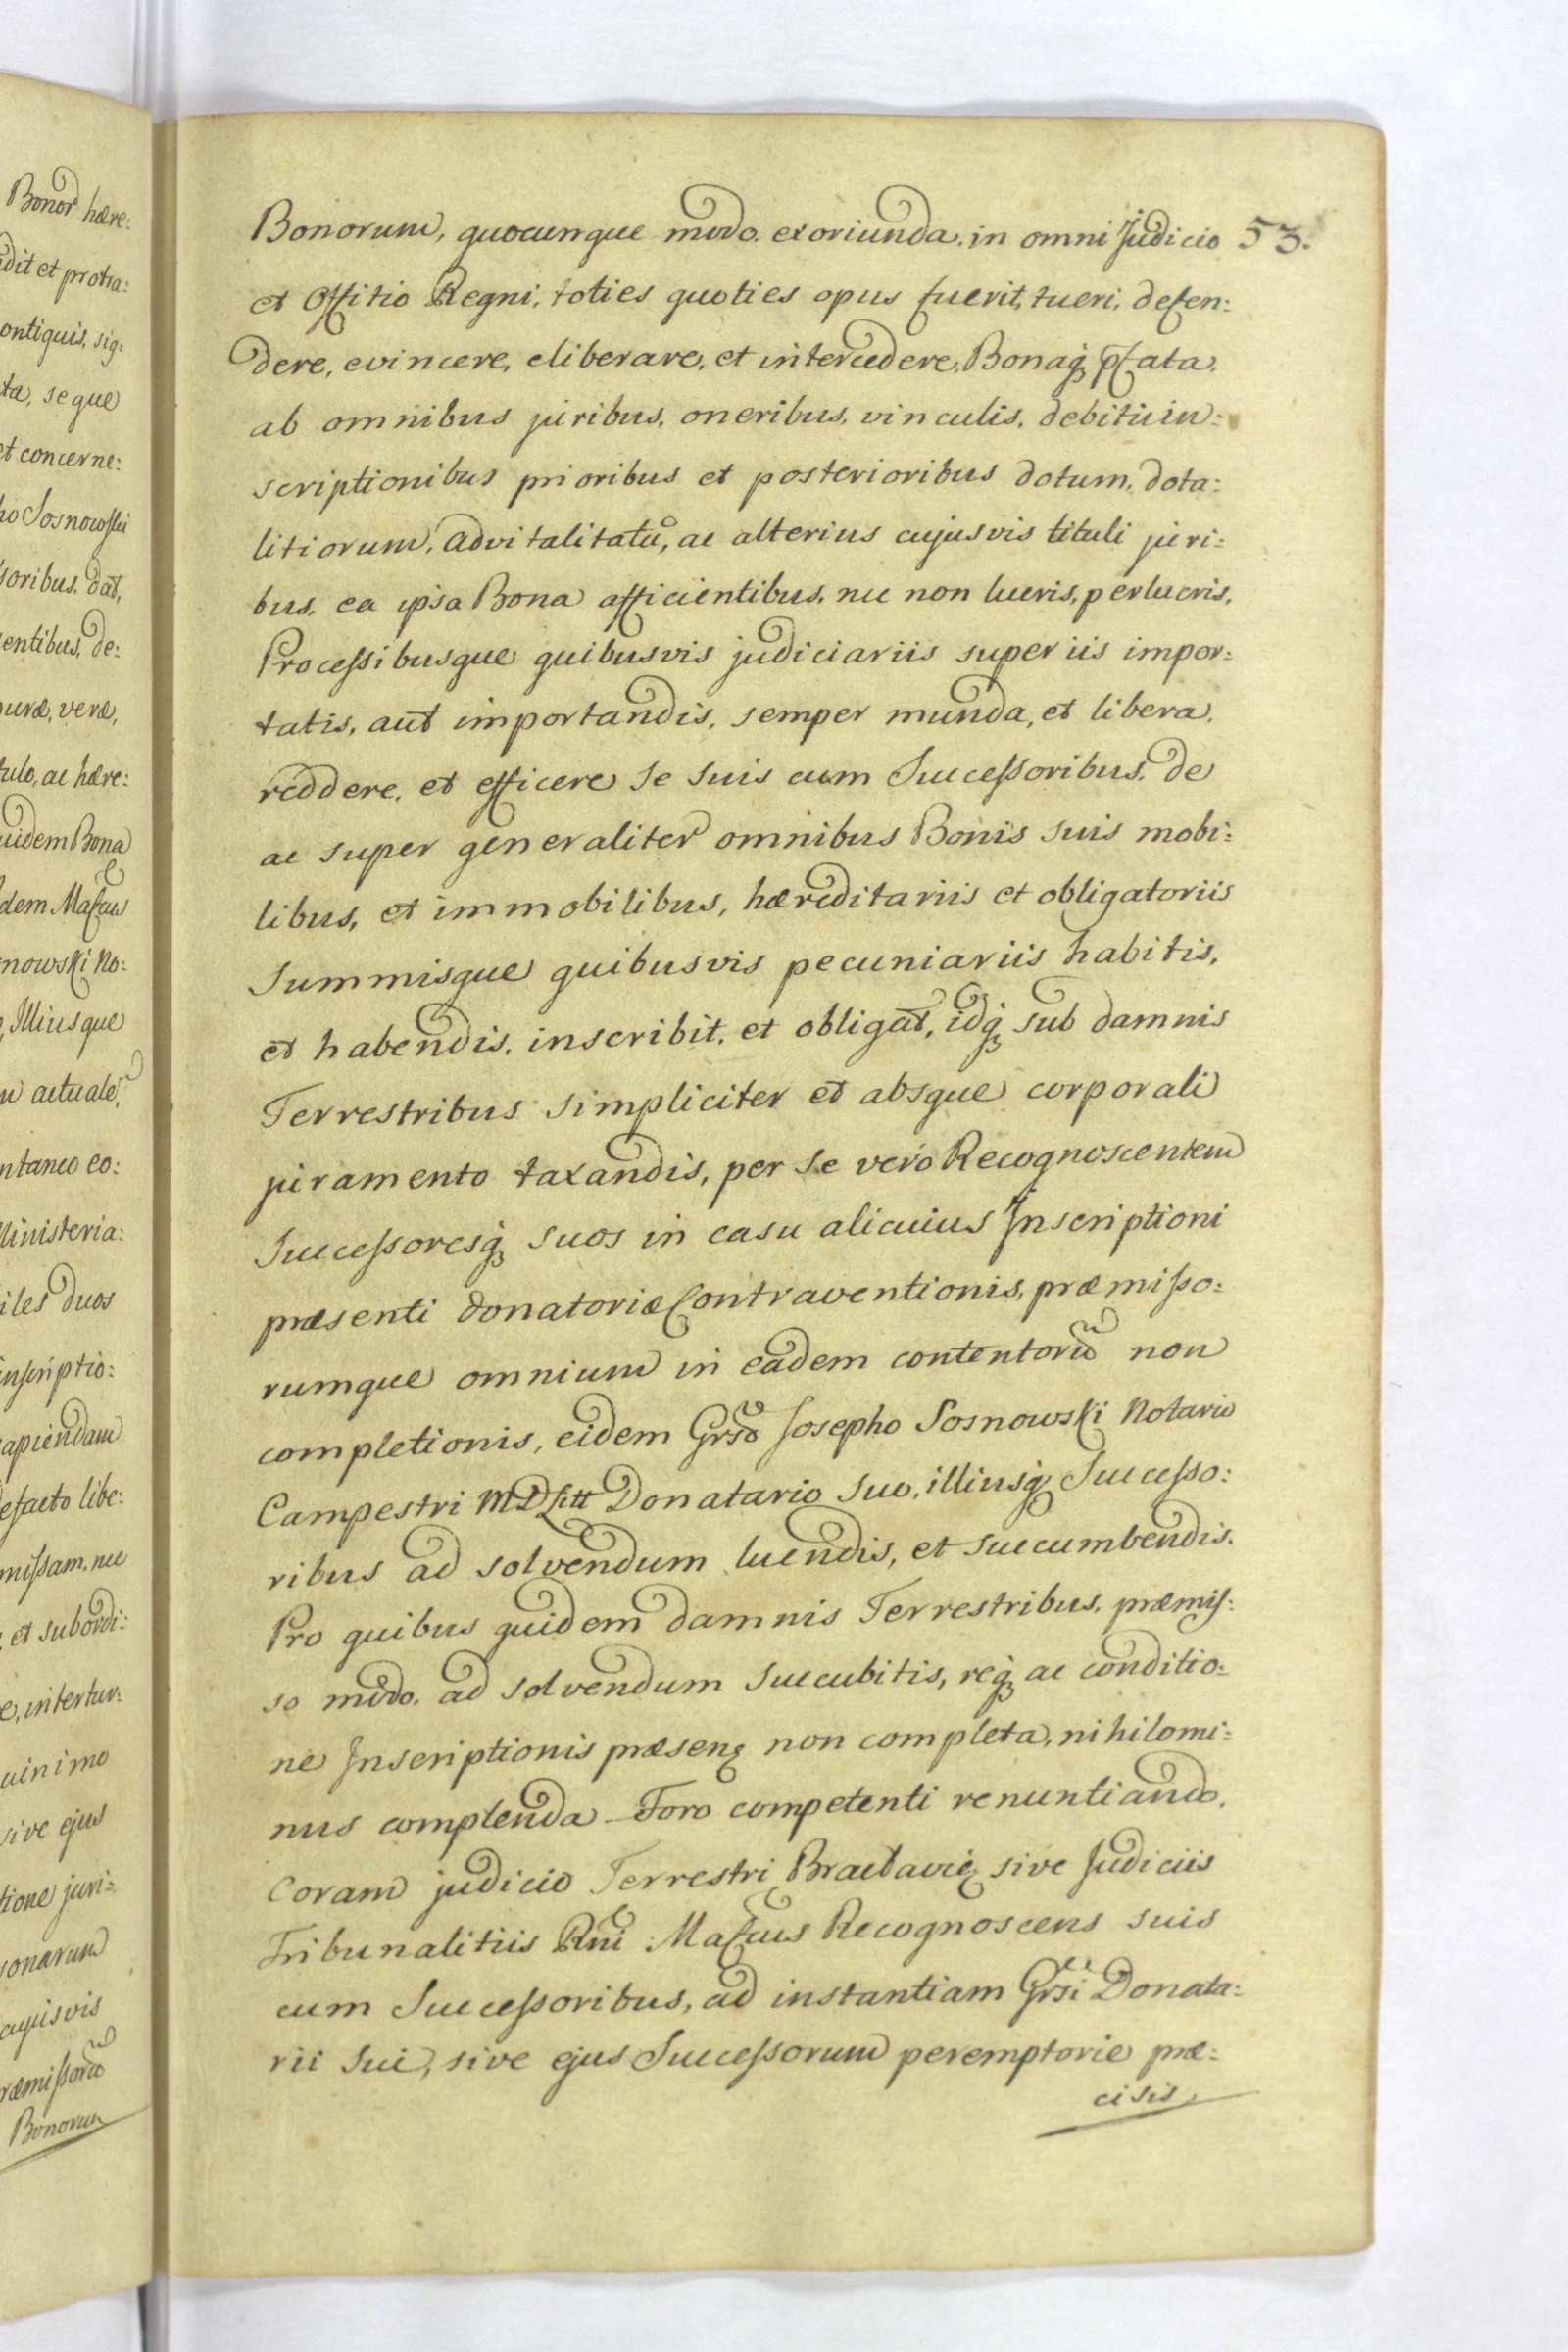 Bonor hære:
dit et protra:
ontiguis, sig:
ta, seque
et concerne:
ho Sosnowski
soribus, dat,
entibus, de:
uræ, veræ,
tulo, ac hære:
uidem Bona
dem Mafcus
nowski No:
, Illiusque
m actuale,
ntaneo eo:
Ministeria:
iles duos
inscriptio:
capiendam
defacto libe:
missam, nec
, et subordi:
e, intertur:
uinimo
sive ejus
tione juri:
sonarum
cujusvis
ræmissoru
Bonorum
Bonorum, quocunque modo. exoriunda, in omni Judicio 53.
et Offitio Regni, toties quoties opus fuerit, tueri, defen:
dere, evincere, eliberare, et intercedere, Bonaq, pfata,
ab omnibus juribus, oneribus, vinculis, debitis in:
scriptionibus prioribus et posterioribus dotum, dota:
litiorum, advitalitatu, ac alterius cujusvis tituli juri:
bus, ea ipsa Bona afficientibus, nec non lucris, perlucris,
Processibusque quibusvis judiciariis super iis impor:
tatis, aut importandis, semper munda, et libera,
reddere, et efficere se suis cum Successoribus, de
ac super generaliter omnibus Bonis suis mobi:
libus, et immobilibus, hæreditariis et obligatoriis
Summisque quibusvis pecuniariis habitis,
et habendis, inscribit, et obligat, idq, sub damnis
Terrestribus simpliciter et absque corporali
juramento taxandis, per se vero Recognoscentem
Successoresq, suos in casu alicuius Inscriptioni
præsenti donatoriæ Contraventionis, præmisso:
rumque omnium in eadem contentoru non
completionis, eidem Grso Josepho Sosnowski Notario
Campestri MDLitt Donatario suo, illiusq, Successo:
ribus ad solvendum luendis, et succumbendis.
Pro quibus quidem damnis Terrestribus, præmis:
so modo, ad solvendum succubitis, req, ac conditio:
ne Inscriptionis præsenę non completa, nihilomi:
nus complenda Foro competenti renuntiando,
Coram judicio Terrestri Braclavię sive Judiciis
Tribunalitiis Rni Mafcus Recognoscens suis
cum Successoribus, ad instantiam Grsi Donata:
rii sui, sive ejus Successorum peremptorie præ:
cisis